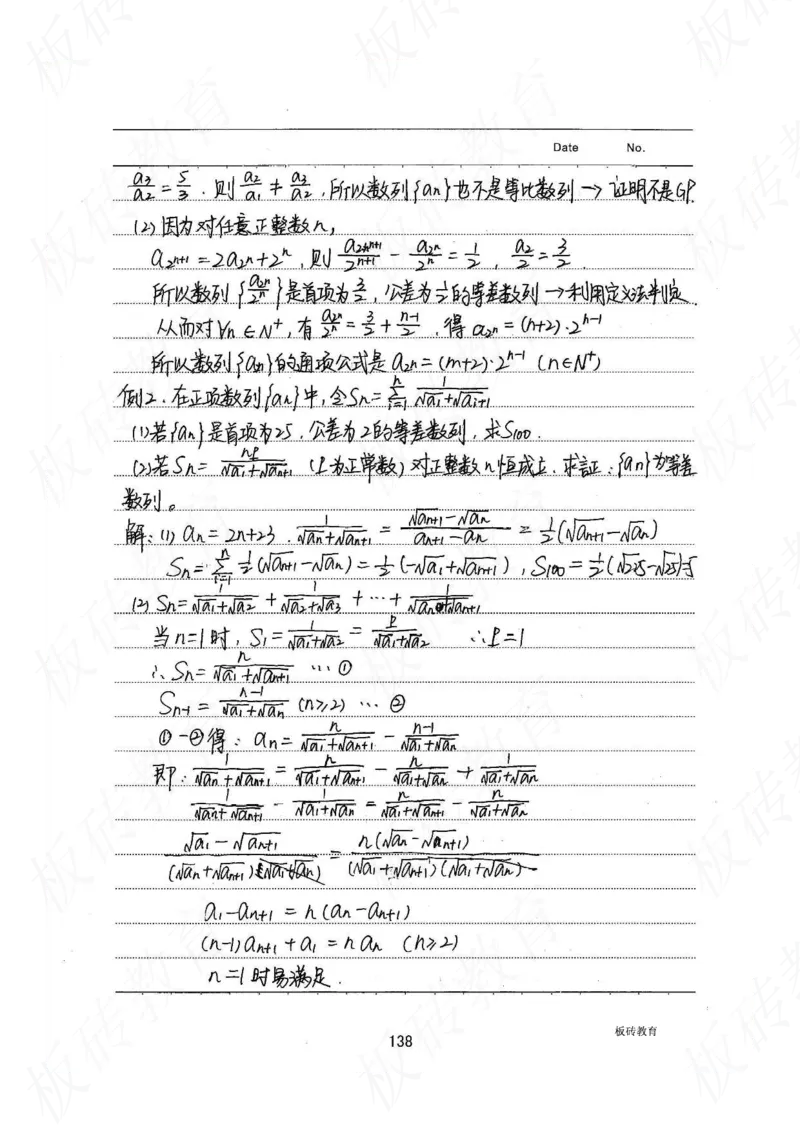 Date No.
a₃/a₂ = 5/3 . 则 a₂/a₁ ≠ a₃/a₂ , 所以数列{an}也不是等比数列 → 证明不是GP.
(2) 因为对任意正整数n,
a_{2^{n+1}} = 2a_{2^n} + 2^n , 则 a_{2^{n+1}}/2^{n+1} - a_{2^n}/2^n = 1/2 , a₂/2 = 3/2 .
所以数列{a_{2^n}/2^n}是首项为3/2, 公差为1/2的等差数列 → 利用定义法判定.
从而对∀n∈N⁺, 有 a_{2^n}/2^n = 3/2 + (n-1)/2 . 得 a_{2^n} = (n+2)·2^{n-1}
所以数列{a_{2^n}}的通项公式是 a_{2^n} = (n+2)·2^{n-1} (n∈N⁺)
例2. 在正项数列{an}中, 令Sn = Σ_{i=1}^{n} 1/(√ai+√ai+1)
(1) 若{an}是首项为25, 公差为2的等差数列, 求S₁₀₀.
(2) 若Sn = np/(√a₁+√an+1) (p为正常数) 对正整数n恒成立. 求証: {an}为等差
数列。
解: (1) an = 2n+23 . 1/(√an+√an+1) = (√an+1-√an)/(an+1-an) = 1/2(√an+1-√an)
Sn = Σ_{i=1}^{n} 1/2(√an+1-√an) = 1/2(-√a₁+√an+1) , S₁₀₀ = 1/2(√225-√25)=5
(2) Sn = 1/(√a₁+√a₂) + 1/(√a₂+√a₃) + ··· + 1/(√an+√an+1)
当n=1时, S₁ = 1/(√a₁+√a₂) = p/(√a₁+√a₂) ∴p=1
∴Sn = n/(√a₁+√an+1) ··· ①
Sn-1 = (n-1)/(√a₁+√an) (n≥2) ··· ②
①-②得: an = n/(√a₁+√an+1) - (n-1)/(√a₁+√an)
即: 1/(√an+√an+1) = n/(√a₁+√an+1) - n/(√a₁+√an) + 1/(√a₁+√an)
1/(√an+√an+1) - 1/(√a₁+√an) = n/(√a₁+√an+1) - n/(√a₁+√an)
(√a₁-√an+1)/((√an+√an+1)(√a₁+√an)) = n(√an-√an+1)/((√a₁+√an+1)(√a₁+√an))
a₁-an+1 = n(an-an+1)
(n-1)an+1 + a₁ = nan (n≥2)
n=1时易满足.
138
板砖教育